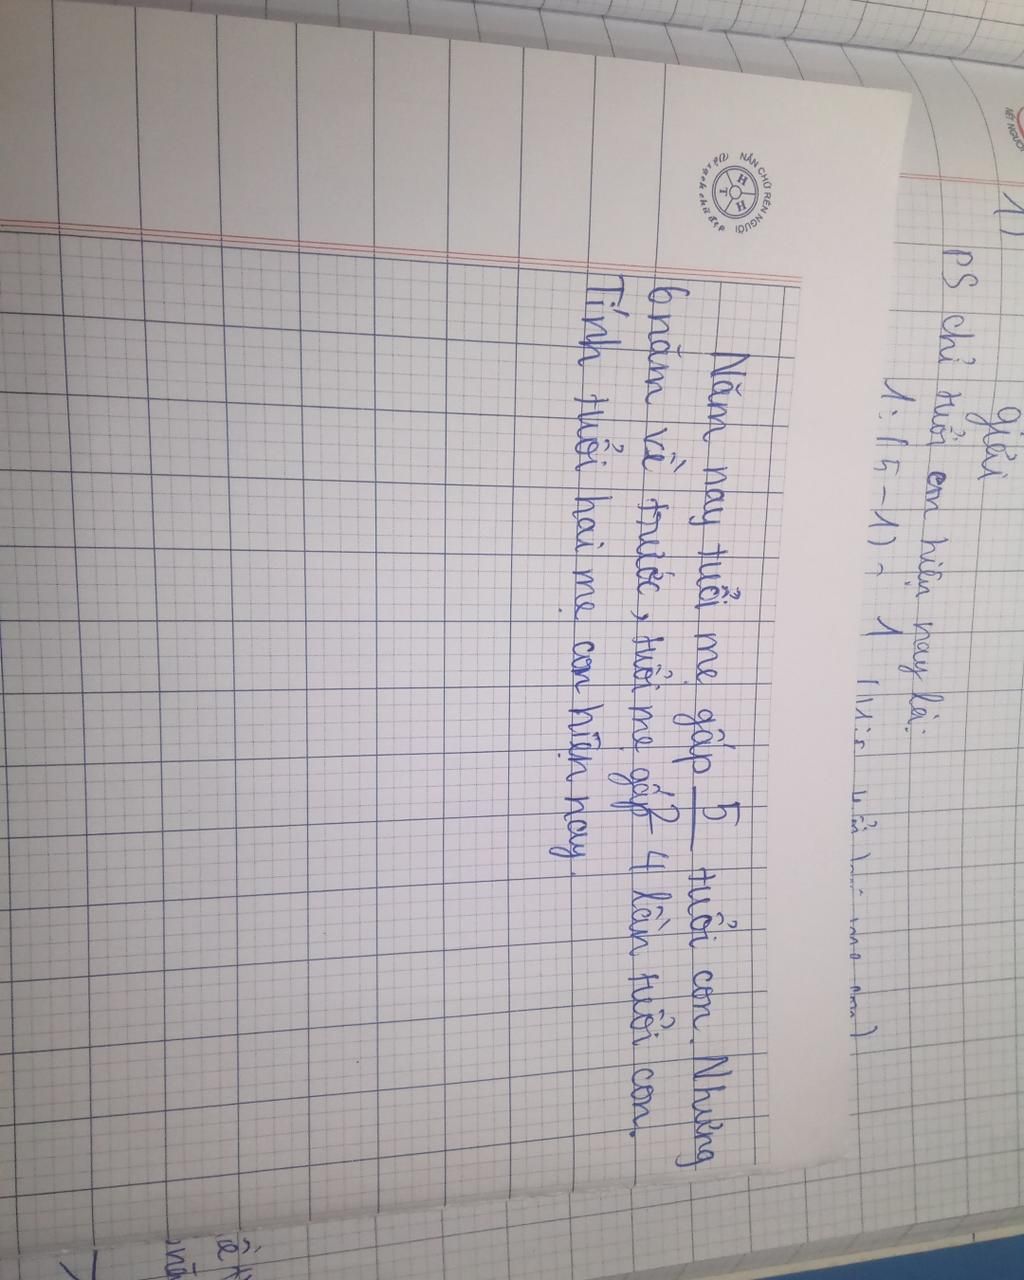 1)
giải
PS chỉ tuổi em hiện nay là:
1: (5-1) = 1
NẮN CHỮ RÈN NGƯỜI
H H T
Năm nay tuổi mẹ gấp 5/2 tuổi con. Nhưng
6 năm về trước, tuổi mẹ gấp 4 lần tuổi con.
Tính tuổi hai mẹ con hiện nay.